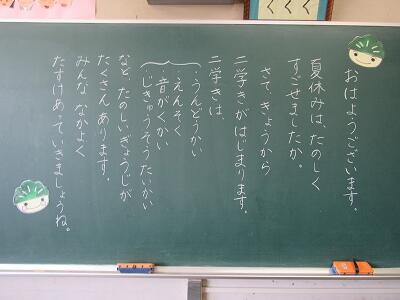 おはようございます。
夏休みは、たのしく
すごせましたか。
さて、きょうから
二学きがはじまります。
二学きは、
・うんどうかい
・えんそく
・音がくかい
・じきゅうそうたいかい
など、たのしいぎょうじが
たくさんあります。
みんな なかよく
たすけあっていきましょうね。
くくく